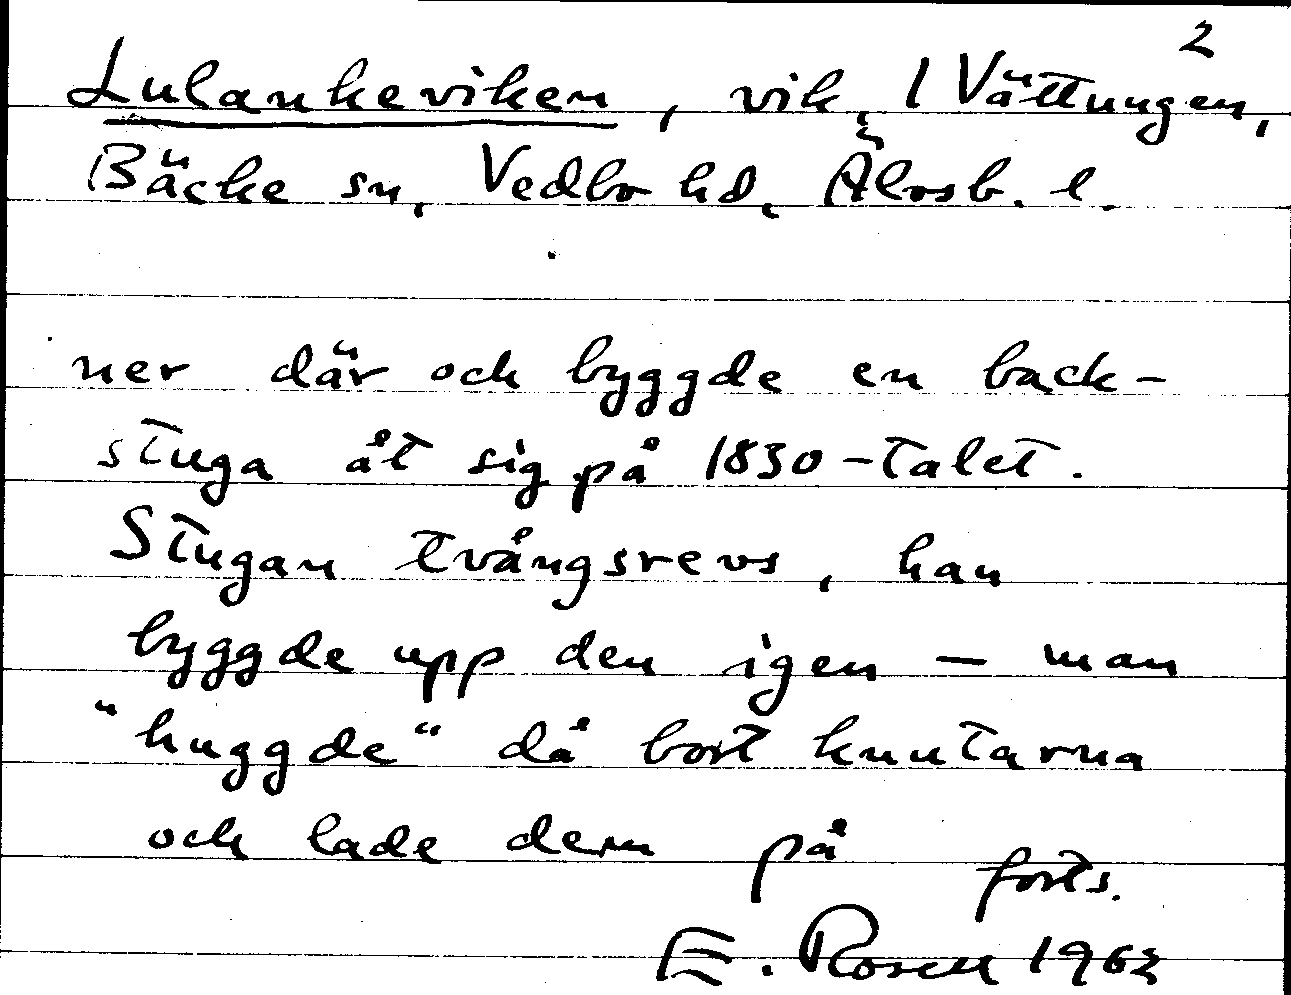 2
Lulankeviken, vik, I Vättungen,
Bäcke sn, Vedbo hd, Älvsb. l.
ner där och byggde en back-
stuga åt sig på 1830-talet.
Stugan tvångsrevs, han
byggde upp den igen – man
"huggde" då bort knutarna
och lade dem på
forts.
E. Rosell 1963